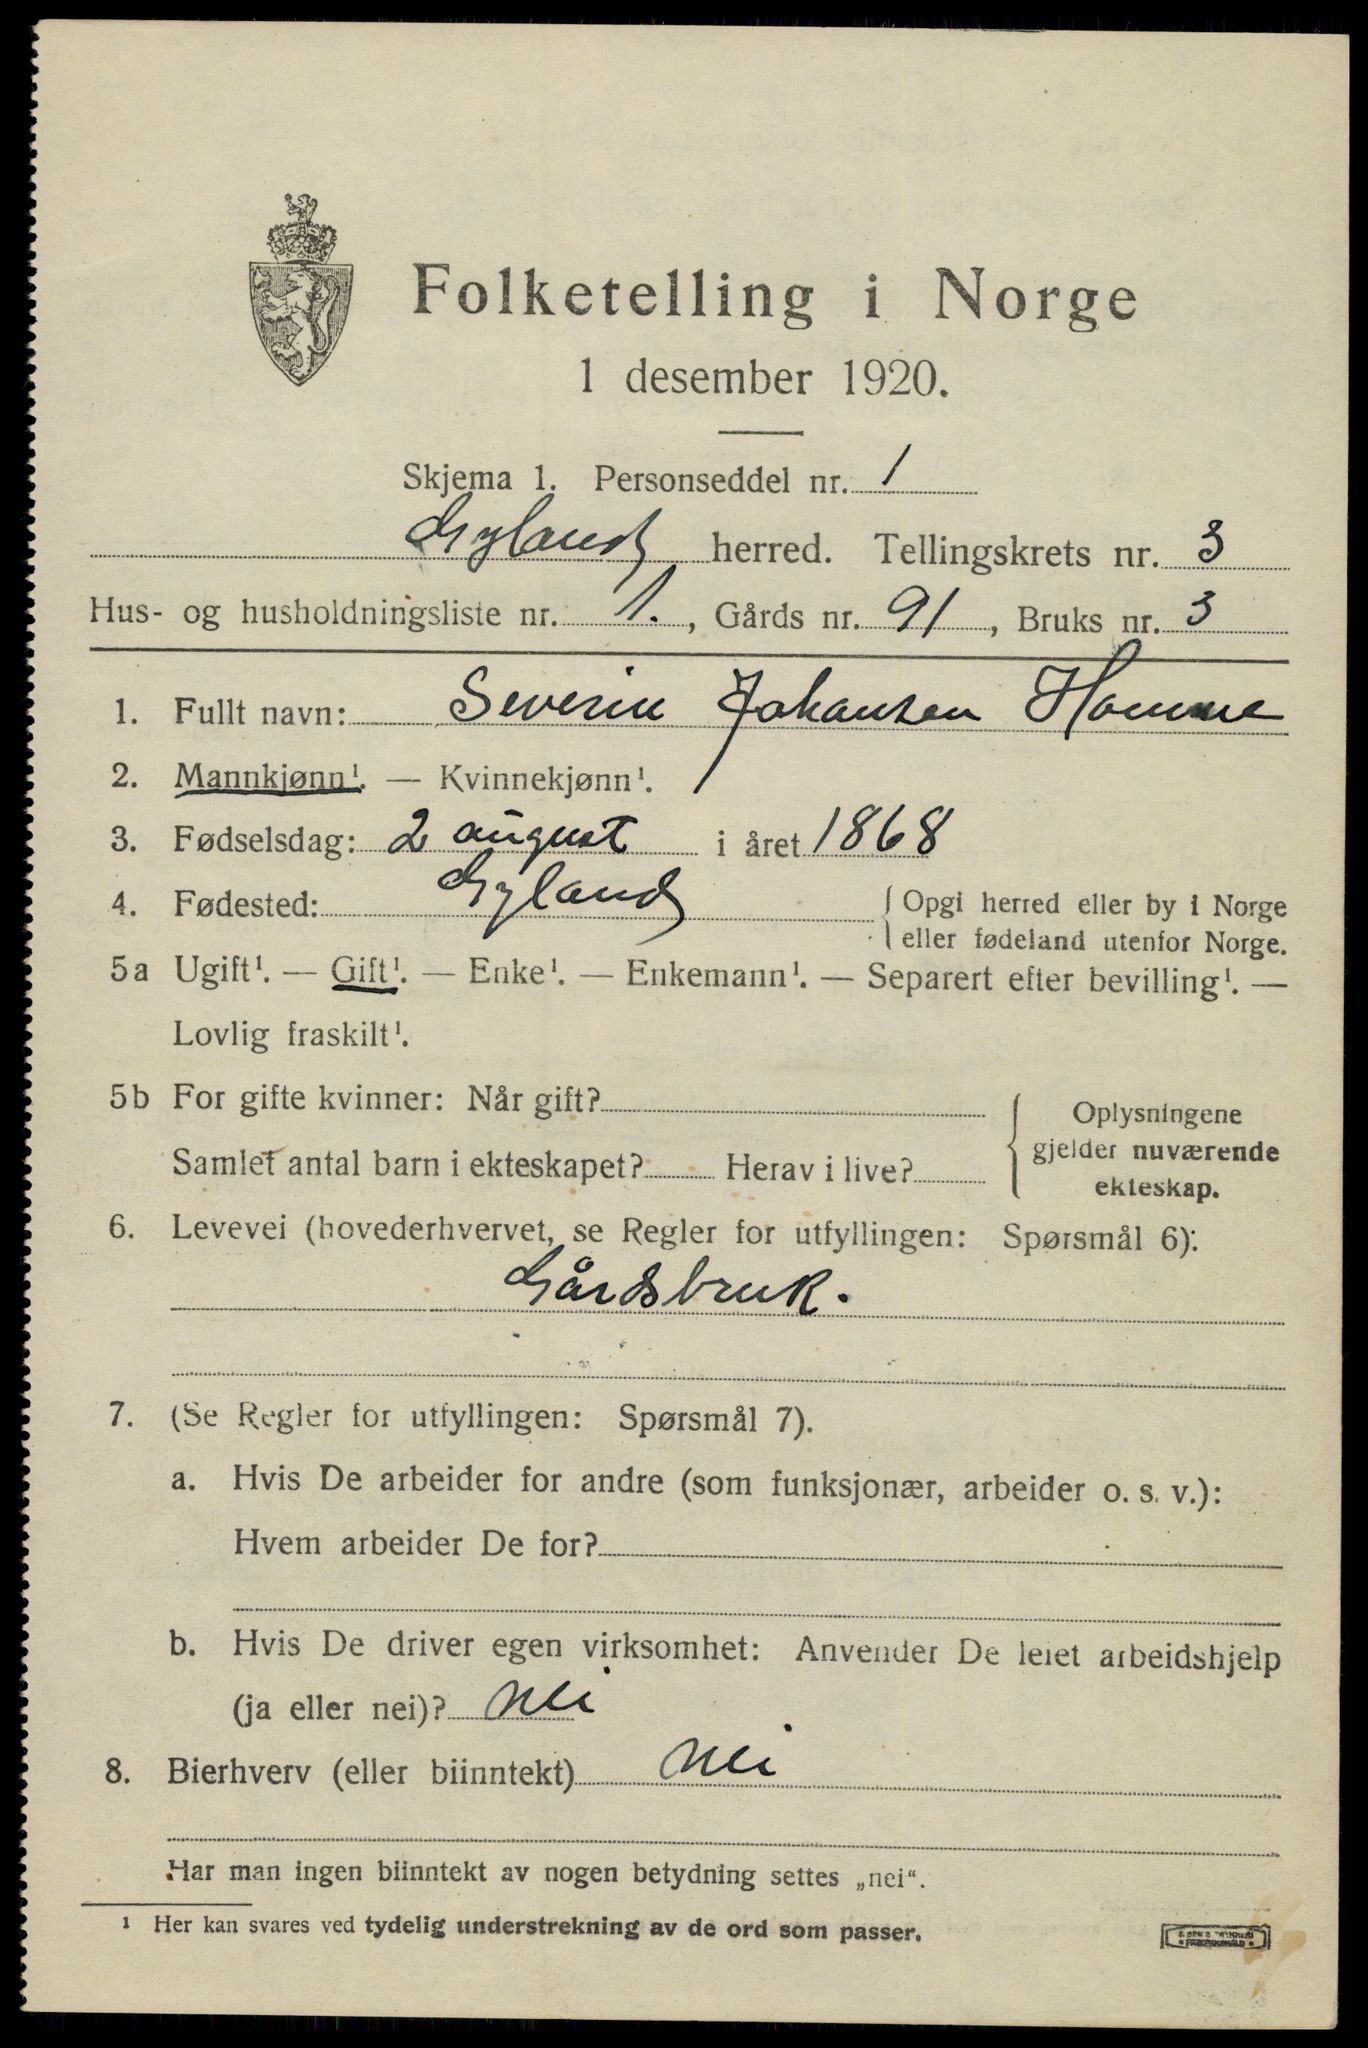 Folketelling i Norge
1 desember 1920.
Skjema 1. Personseddel nr. 1
Gyland herred. Tellingskrets nr. 3
Hus- og husholdningsliste nr. 1., Gårds nr. 91, Bruks nr. 3
1. Fullt navn: Severin Johansen Homme
2. Mannkjønn¹. — Kvinnekjønn¹.
3. Fødselsdag: 2 august i året 1868
4. Fødested: Gyland { Opgi herred eller by i Norge
eller fødeland utenfor Norge.
5a Ugift¹. — Gift¹. — Enke¹. — Enkemann¹. — Separert efter bevilling¹. —
Lovlig fraskilt¹.
5b For gifte kvinner: Når gift?
Samlet antal barn i ekteskapet? Herav i live?
{ Oplysningene
gjelder nuværende
ekteskap.
6. Levevei (hovederhvervet, se Regler for utfyllingen: Spørsmål 6):
Gårdsbruk.
7. (Se Regler for utfyllingen: Spørsmål 7).
a. Hvis De arbeider for andre (som funksjonær, arbeider o. s. v.):
Hvem arbeider De for?
b. Hvis De driver egen virksomhet: Anvender De leiet arbeidshjelp
(ja eller nei)? nei
8. Bierhverv (eller biinntekt) nei
Har man ingen biinntekt av nogen betydning settes „nei“.
¹ Her kan svares ved tydelig understrekning av de ord som passer.